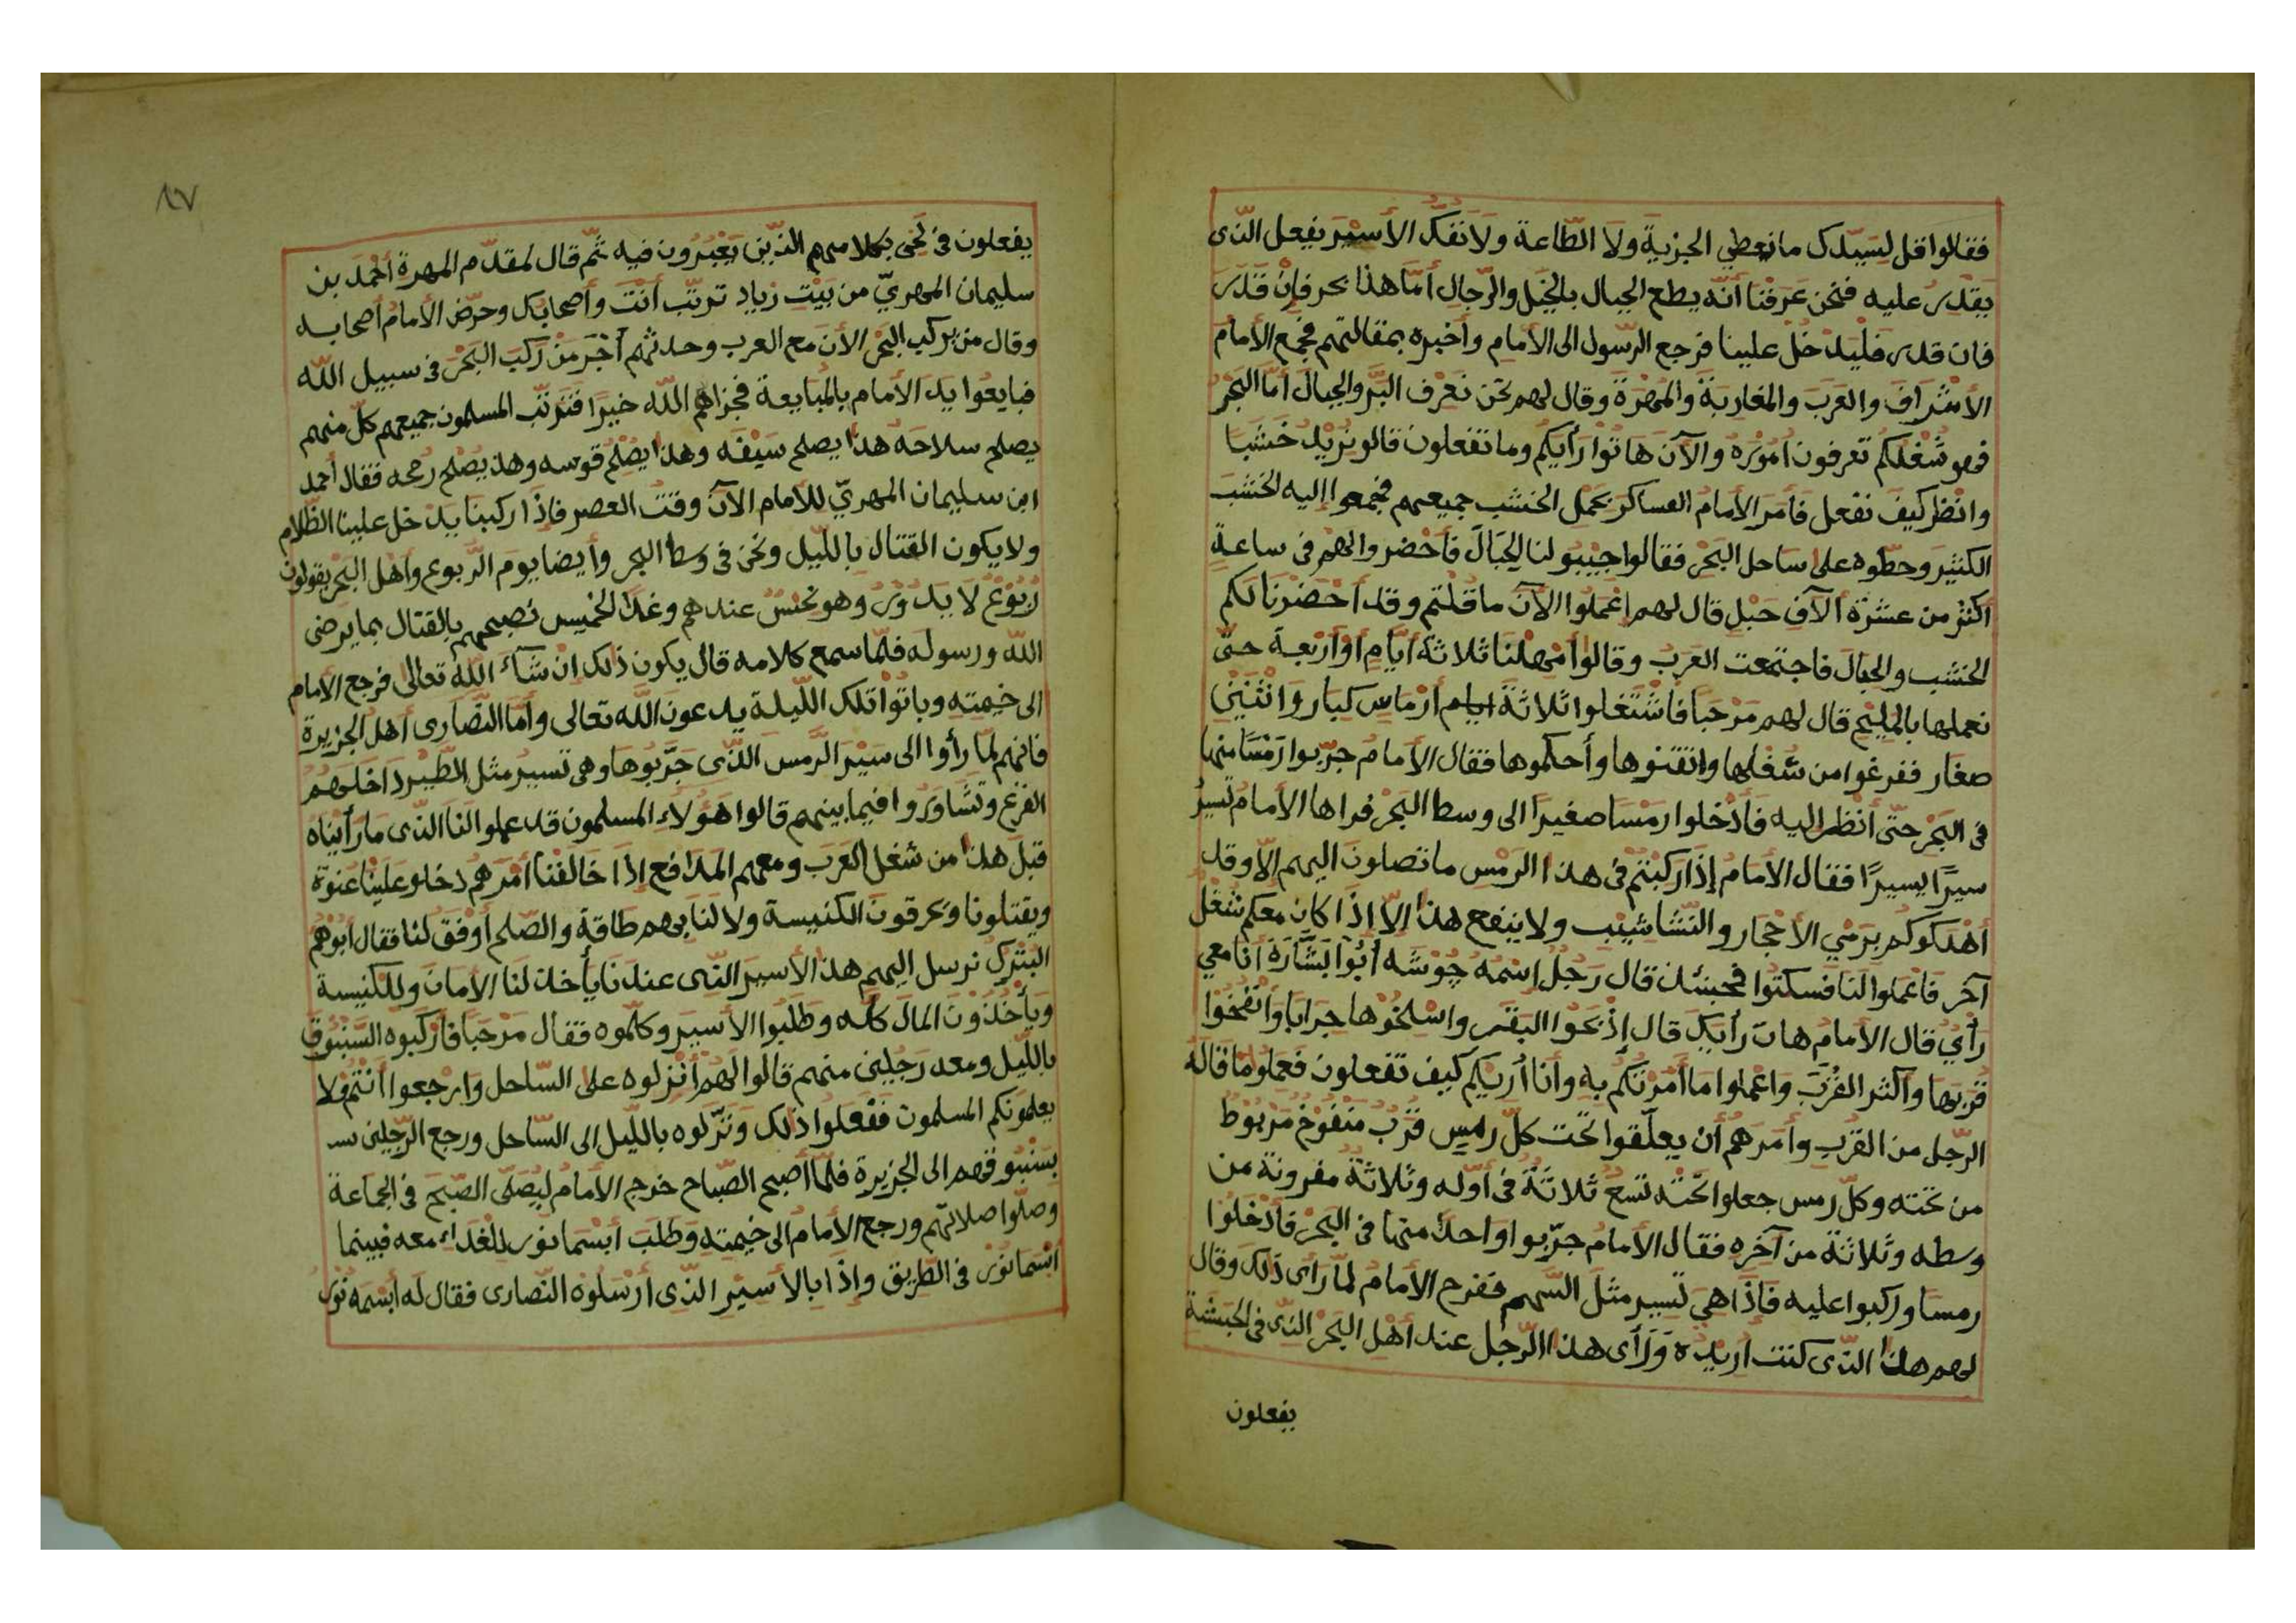 فقالوا قل لسيّدك ما نعطي الجزية ولا الطّاعة ولا نفكّ الأسير يفعل الّذى
يقدر عليه فنحن عرفنا أنّه يطلع الجبال بالخيل والرّجال أمّا هذا بحر فإن قدر
فان قدر فليدخل علينا فرجع الرّسول الى الأمام وأخبره بمقالتهم فجمع الأمام
الأشراف والعرب والمغاربة والمهرة وقال لهم نحن نعرف البرّ والجبال أمّا البحر
فهو شغلكم تعرفون أموره والآن هاتوا رأيكم وما تفعلون قالو نريد خشبا
وانظر كيف نفعل فأمر الأمام العساكر بحمل الخشب جميعهم فجمعوا إليه الخشب
الكثير وحطّوه على ساحل البحر فقالوا جيبو لنا الحبال فأحضروا لهم فى ساعة
أكثر من عشرة آلاف حبل قال لهم اعملوا الآن ما قلتم وقد أحضرنا لكم
الخشب والحبال فاجتمعت العرب وقالوا أمهلنا ثلاثة أيّام أو أربعة حتّى
نعملها بالمليح قال لهم مرحبا فاشتغلوا ثلاثة ايام أرماس كبار واثنين
صغار ففرغوا من شغلها واتقنوها وأحكموها فقال الأمام جرّبوا رمسا منها
فى البحر حتّى أنظر اليه فأدخلوا رمسا صغيرا الى وسط البحر فراها الأمام تسير
سيرًا يسيرًا فقال الأمام إذا ركبتم فى هذا الرمس ما تصلون اليهم الّا وقد
أهلكوكم برمي الأحجار والنّشاشيب ولا ينفع هذا الّا اذا كان معكم شغل
آخر فاعملوا لنا فسكتوا فحينئذ قال رجل اسمه جوشه أبو ابشّارة أنا معي
رأي قال الأمام هات رأيك قال إذبحوا البقر واسلخوها جرابا وانفخوا
قربها وأكثر القرب واعملوا ما أمرتكم به وأنا أريكم كيف تفعلون فعملو ما قاله
الرّجل من القرب وأمرهم أن يعلّقوا تحت كلّ رمس قرب منفوخ مربوط
من تحته وكلّ رمس جعلوا تحته تسع ثلاثة فى أوّله وثلاثة مقرونة من
وسطه وثلاثة من آخره فقال الأمام جرّبوا واحدًا منها فى البحر فأدخلوا
رمسا وركبوا عليه فإذا هي تسير مثل السّهم ففرح الأمام لمّا رأى ذلك وقال
لهم هذا الّذى كنت أريده ورأى هذا الرّجل عند أهل البحر الّذى فى الحبشة
يفعلون
٨٧
يفعلون فى لخى بكلامهم الّذين يعبرون فيه ثمّ قال لمقدّم المهرة أحمد بن
سليمان المهريّ من بيت زياد ترتّب أنت وأصحابك وحرّض الأمام أصحابه
وقال من يركب البحر الآن مع العرب وحدثهم أجر من ركب البحر فى سبيل الله
فبايعوا يد الأمام بالمبايعة فجزاهم الله خيرا فترتّب المسلمون جميعهم كلّ منهم
يصلح سلاحه هذا يصلح سيفه وهذا يصلح قوسه وهذ يصلح رمحه فقال أحمد
ابن سليمان المهريّ للأمام الآن وقت العصر فإذا ركبنا يدخل علينا الظّلام
ولا يكون القتال باللّيل ونحن فى وسط البحر وأيضا يوم الرّبوع وأهل البحر يقولون
ربوع لا يدور وهو نحس عندهم وغدا الخميس نصبحهم بالقتال بما يرضى
الله ورسوله فلمّا سمع كلامه قال يكون ذلك ان شآء الله تعالى فرجع الأمام
الى خيمته وباتوا تلك اللّيلة يدعون الله تعالى وأما النّصارى أهل الجزيرة
فانهم لمّا رأوا الى سير الرّمس الّذى جرّبوها وهى تسير مثل الطّير داخلهم
الفزع وتشاوروا فيما بينهم قالوا هؤلاء المسلمون قد عملوا لنا الّذى ما رأيناه
قبل هذا من شغل العرب ومعهم المدافع إذا خالفنا أمرهم دخلو علينا عنوة
ويقتلونا ويحرقون الكنيسة ولا لنا بهم طاقة والصّلح أوفق لنا فقال أبوهم
البترك نرسل اليهم هذا الأسير الّذى عندنا يأخذ لنا الأمان وللكنيسة
ويأخذون المال كلّه وطلبوا الأسير وكلّموه فقال مرحبا فأركبوه السّنبوق
باللّيل ومعه رجلين منهم قالوا لهم أنزلوه على السّاحل وارجعوا أنتم ولا
يعلمونكم المسلمون ففعلوا ذلك ونزّلوه باللّيل الى السّاحل ورجع الرّجلين بسـ
بسنبوقهم الى الجزيرة فلمّا أصبح الصّباح خرج الأمام ليصلّى الصّبح فى الجماعة
وصلّوا صلاتهم ورجع الأمام الى خيمته وطلب أبسما نور للغداء معه فبينما
ابسما نور فى الطّريق واذا بالأسير الّذى أرسلوه النّصارى فقال له أبسمه نور